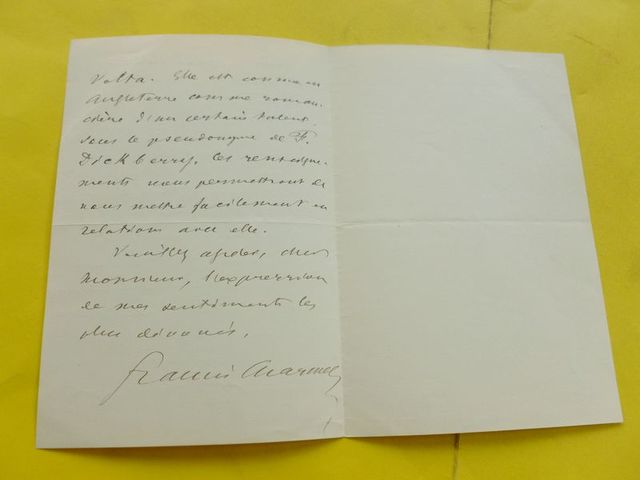 Volta. Elle est connue en
Angleterre comme roman-
cière d'un certain talent,
sous le pseudonyme de F.
Dickberry. Ces renseigne-
ments vous permettront de
vous mettre facilement en
relations avec elle.
Veuillez agréer, cher
Monsieur, l'expression
de mes sentiments les
plus dévoués.
Francis Charmes